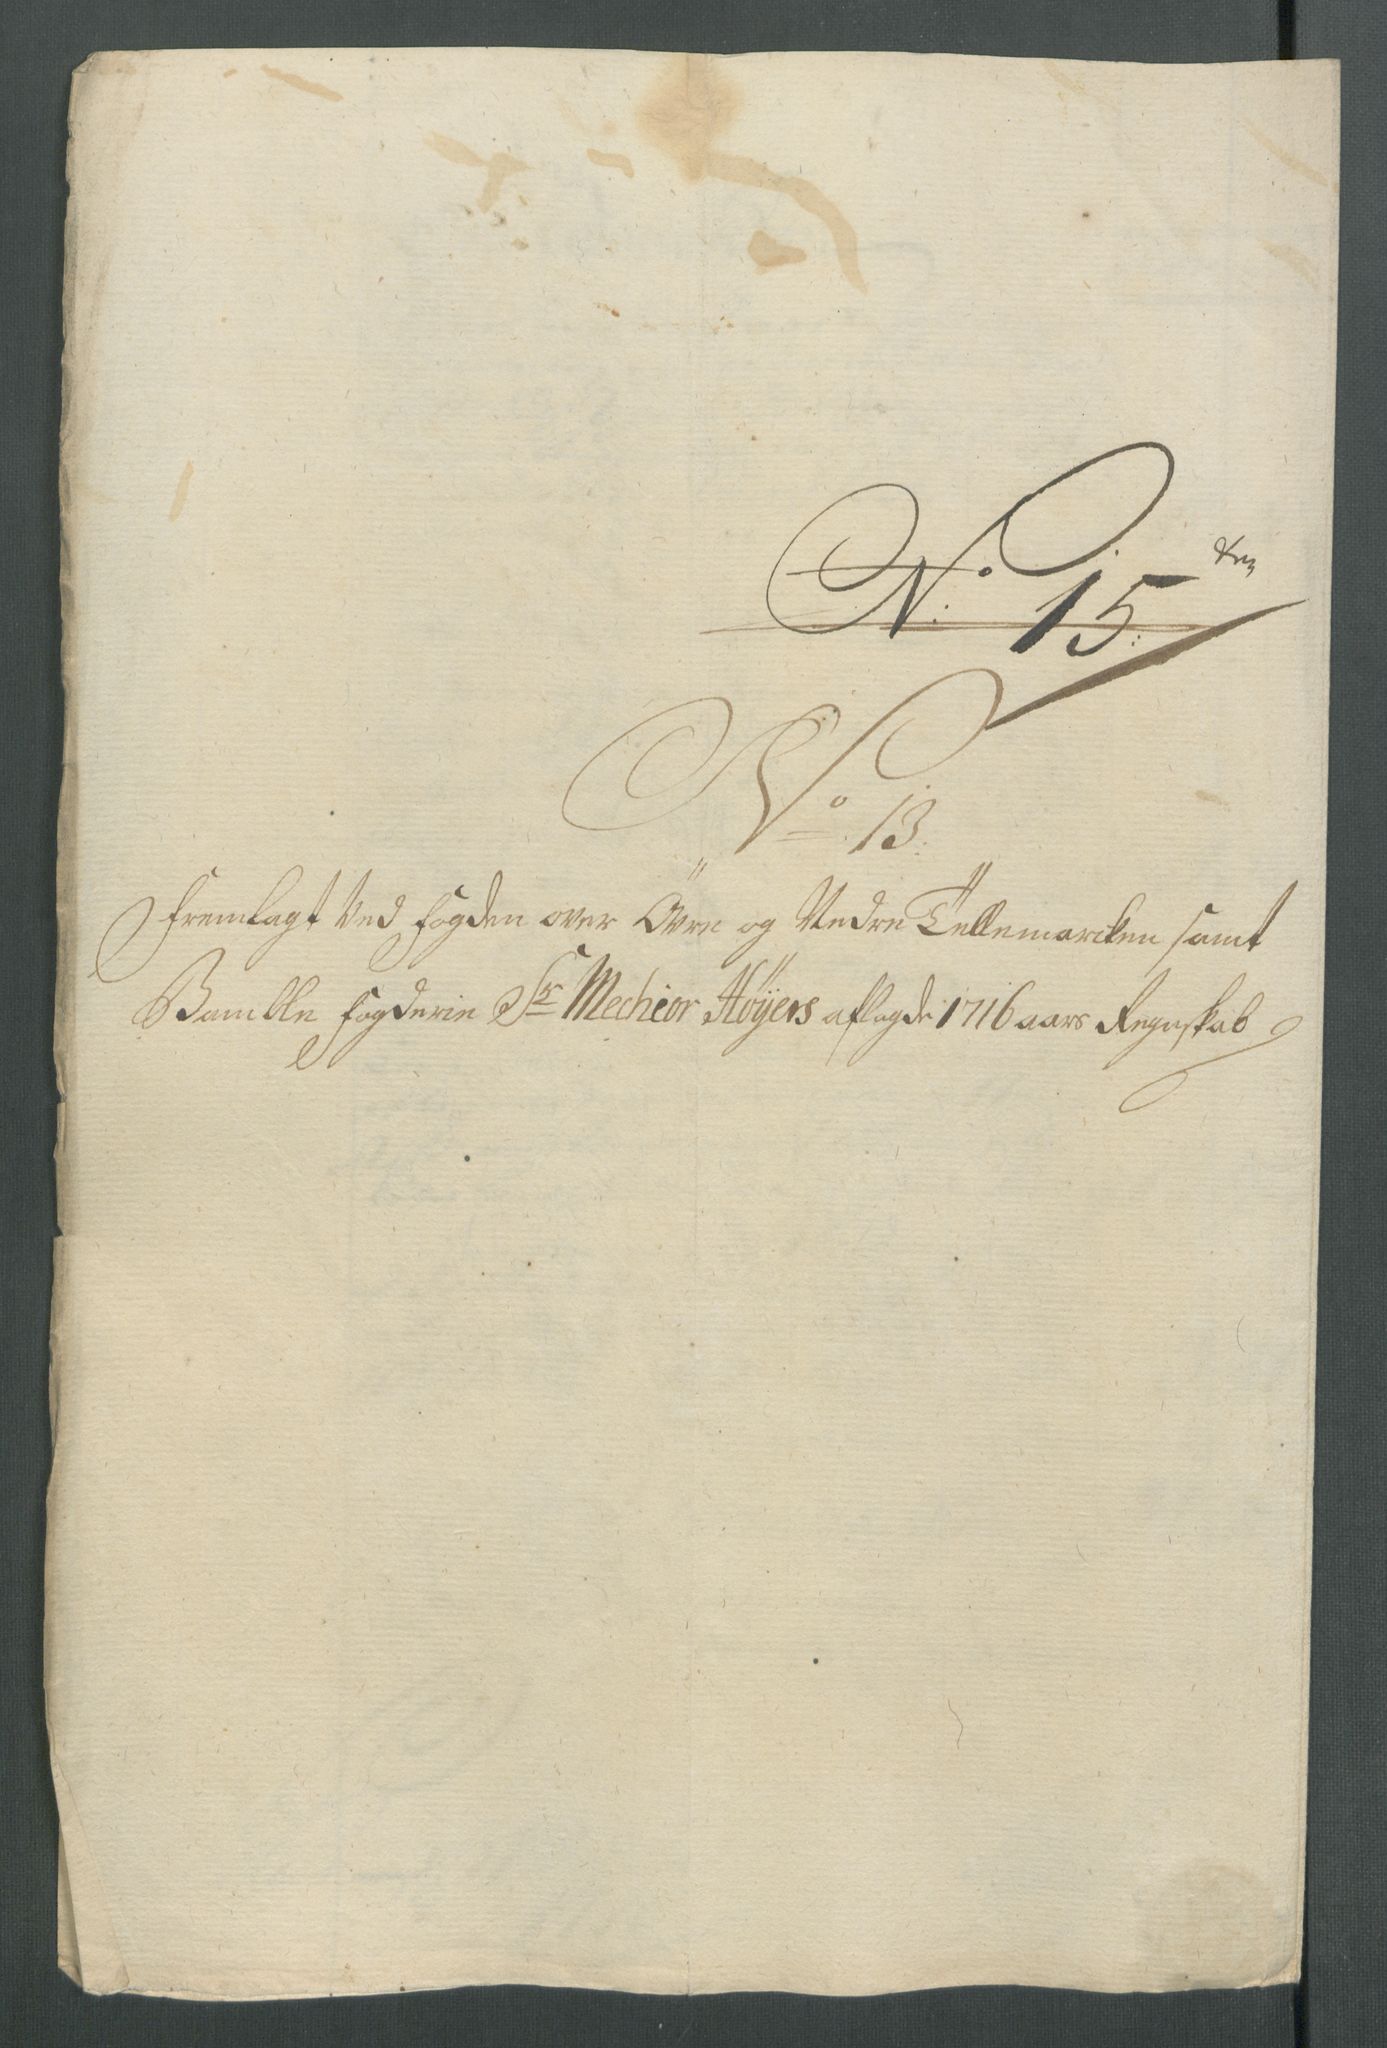 No. 15.
No. 13.
Fremlagt Ved fogden over Öfre og Nedre Tellemarcken samt
Bamble fogderie Sr Mechior Höÿers aflagde 1716 aars Regnskab